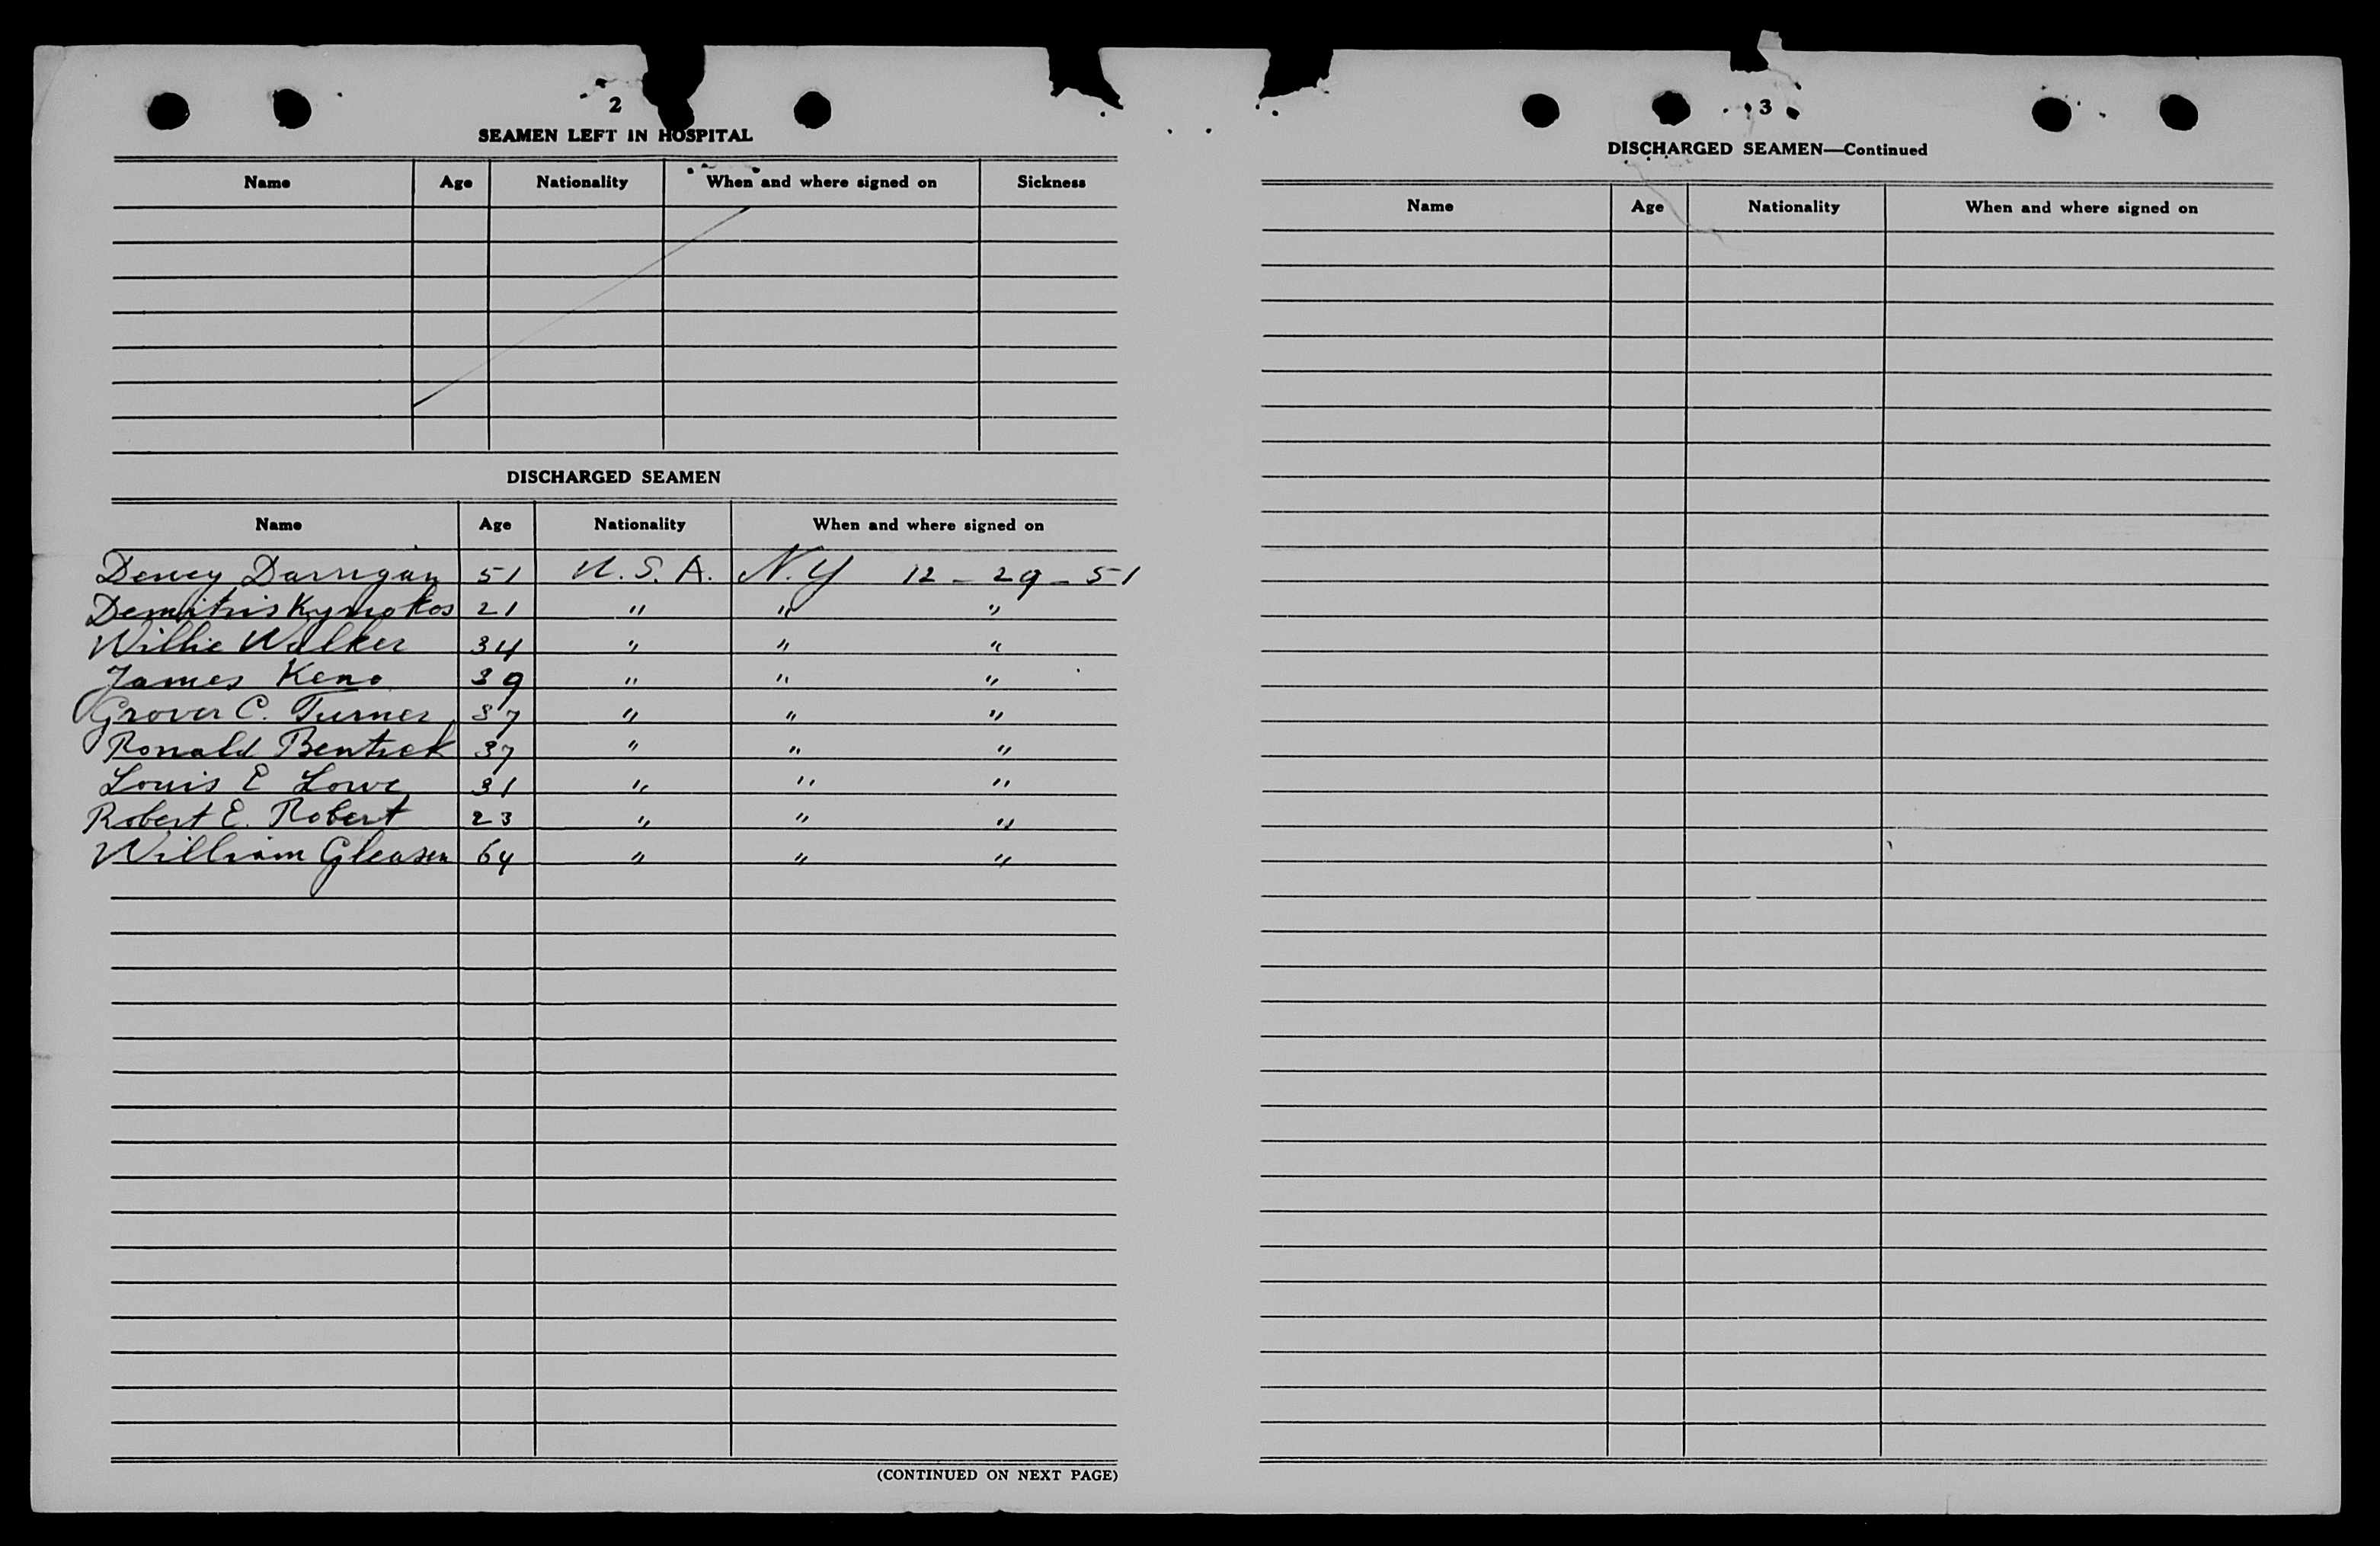 2
SEAMEN LEFT IN HOSPITAL
Name Age Nationality When and where signed on Sickness
DISCHARGED SEAMEN
Name Age Nationality When and where signed on
Dewey Darrigan 51 U.S.A. N.Y 12 - 29 - 51
Demitris Kymokos 21 " " "
Willie Walker 34 " " "
James Keno 39 " " "
Grover C. Turner 37 " " "
Ronald Bentick 37 " " "
Louis E Lowe 31 " " "
Robert E. Robert 23 " " "
William Gleason 64 " " "
(CONTINUED ON NEXT PAGE)
3
DISCHARGED SEAMEN—Continued
Name Age Nationality When and where signed on